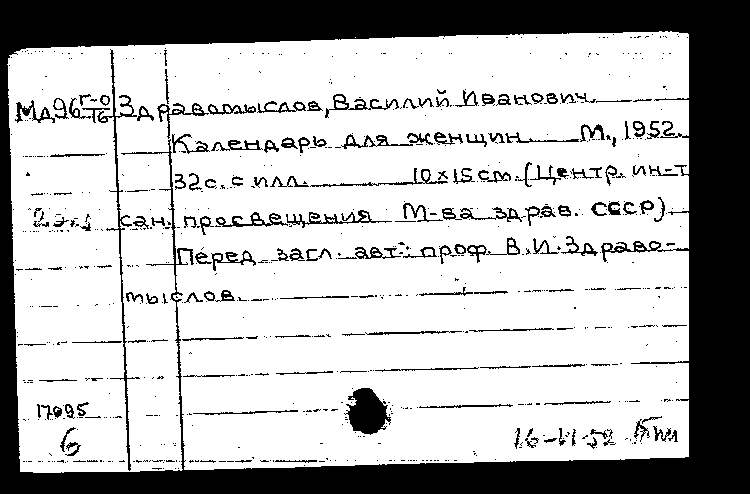 Мд96 Г-0/16 Здравомыслов, Василий Иванович.
Календарь для женщин. М., 1952.
32с. с илл. 10x15см. (Центр. ин-т
2 экз сан. просвещения М-ва здрав. СССР).
Перед загл. авт.: проф. В.И. Здраво-
мыслов.
17095
6 16-VI-52